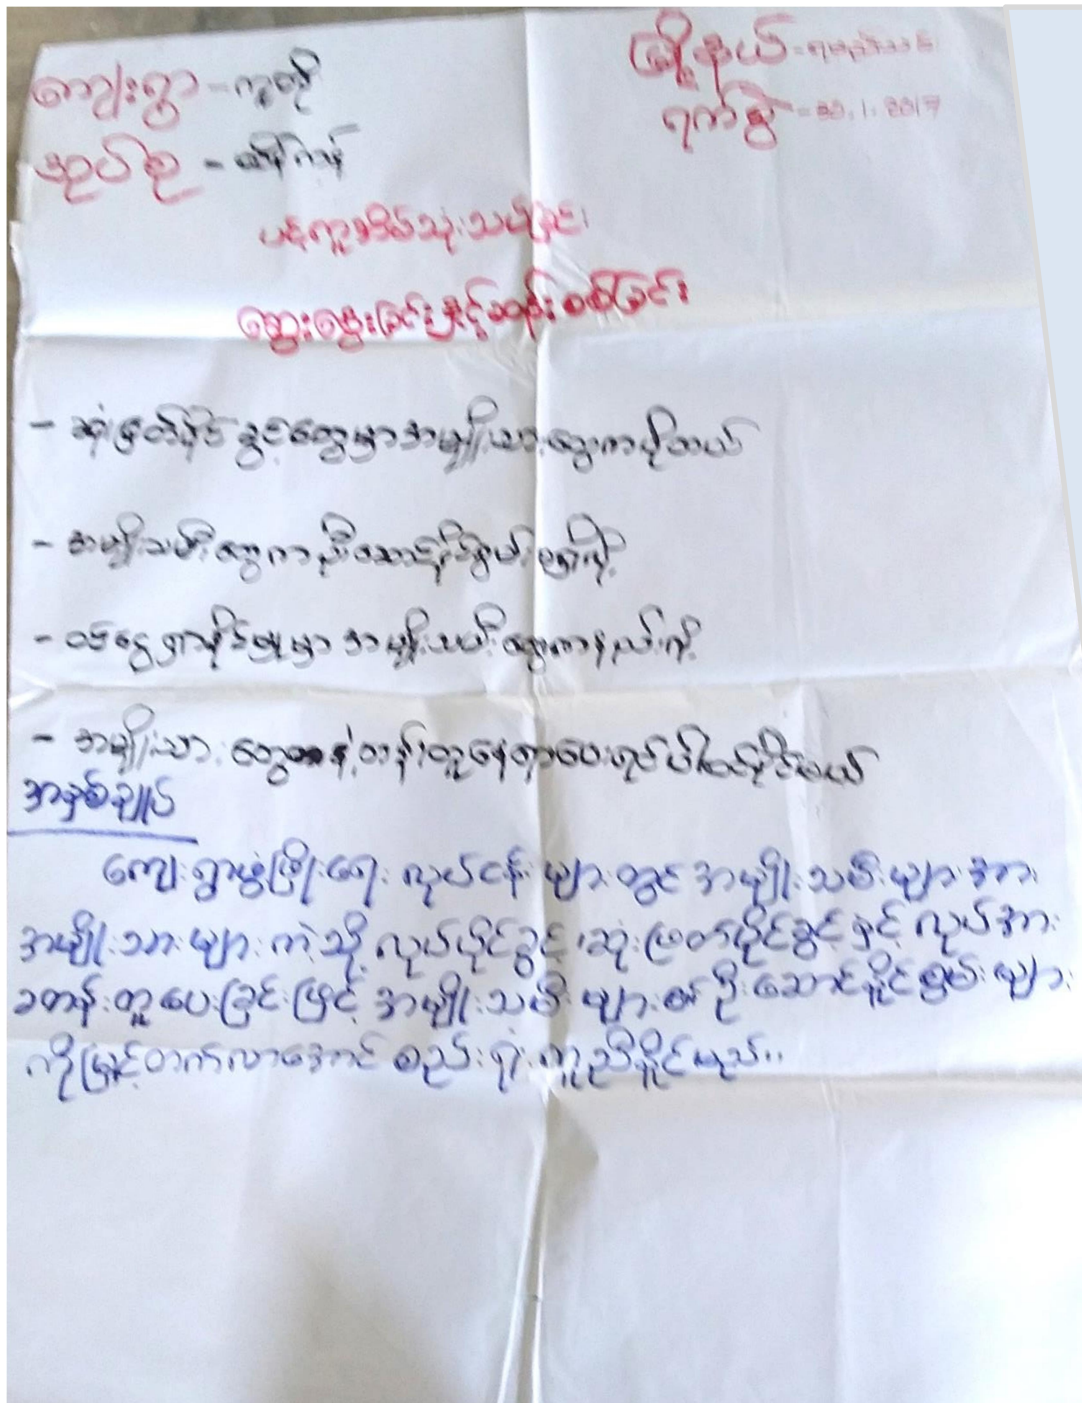 ကျေးရွာ - ကူတို့
မြို့နယ် - ရမည်းသင်း
အုပ်စု - ထိန်ကန်
ရက်စွဲ - 30.1.2017
ပန်းကူအိမ်သုံးသပ်ခြင်း
ဆွေးနွေးခြင်းနှင့်ဆန်းစစ်ခြင်း
- ဆုံးဖြတ်ပိုင်ခွင့်တွေမှာအမျိုးသားတွေကပိုတယ်
- အမျိုးသမီးတွေကဦးဆောင်နိုင်စွမ်းမရှိလို့
- ဝင်ငွေရှာနိုင်မှုမှာ အမျိုးသမီးတွေကနည်းလို့
- အမျိုးသားတွေနဲ့တန်းတူနေရာပေးရင်ပါဝင်နိုင်မယ်
အနှစ်ချုပ်
ကျေးရွာဖွံ့ဖြိုးရေး လုပ်ငန်းများတွင် အမျိုးသမီးများအား
အမျိုးသားများကဲ့သို့ လုပ်ပိုင်ခွင့်၊ဆုံးဖြတ်ပိုင်ခွင့်နှင့် လုပ်အား
ခတန်းတူပေးခြင်းဖြင့် အမျိုးသမီးများ၏ဦးဆောင်နိုင်စွမ်းများ
ကိုမြှင့်တက်လာအောင် စည်းရုံးကူညီနိုင်မည်။